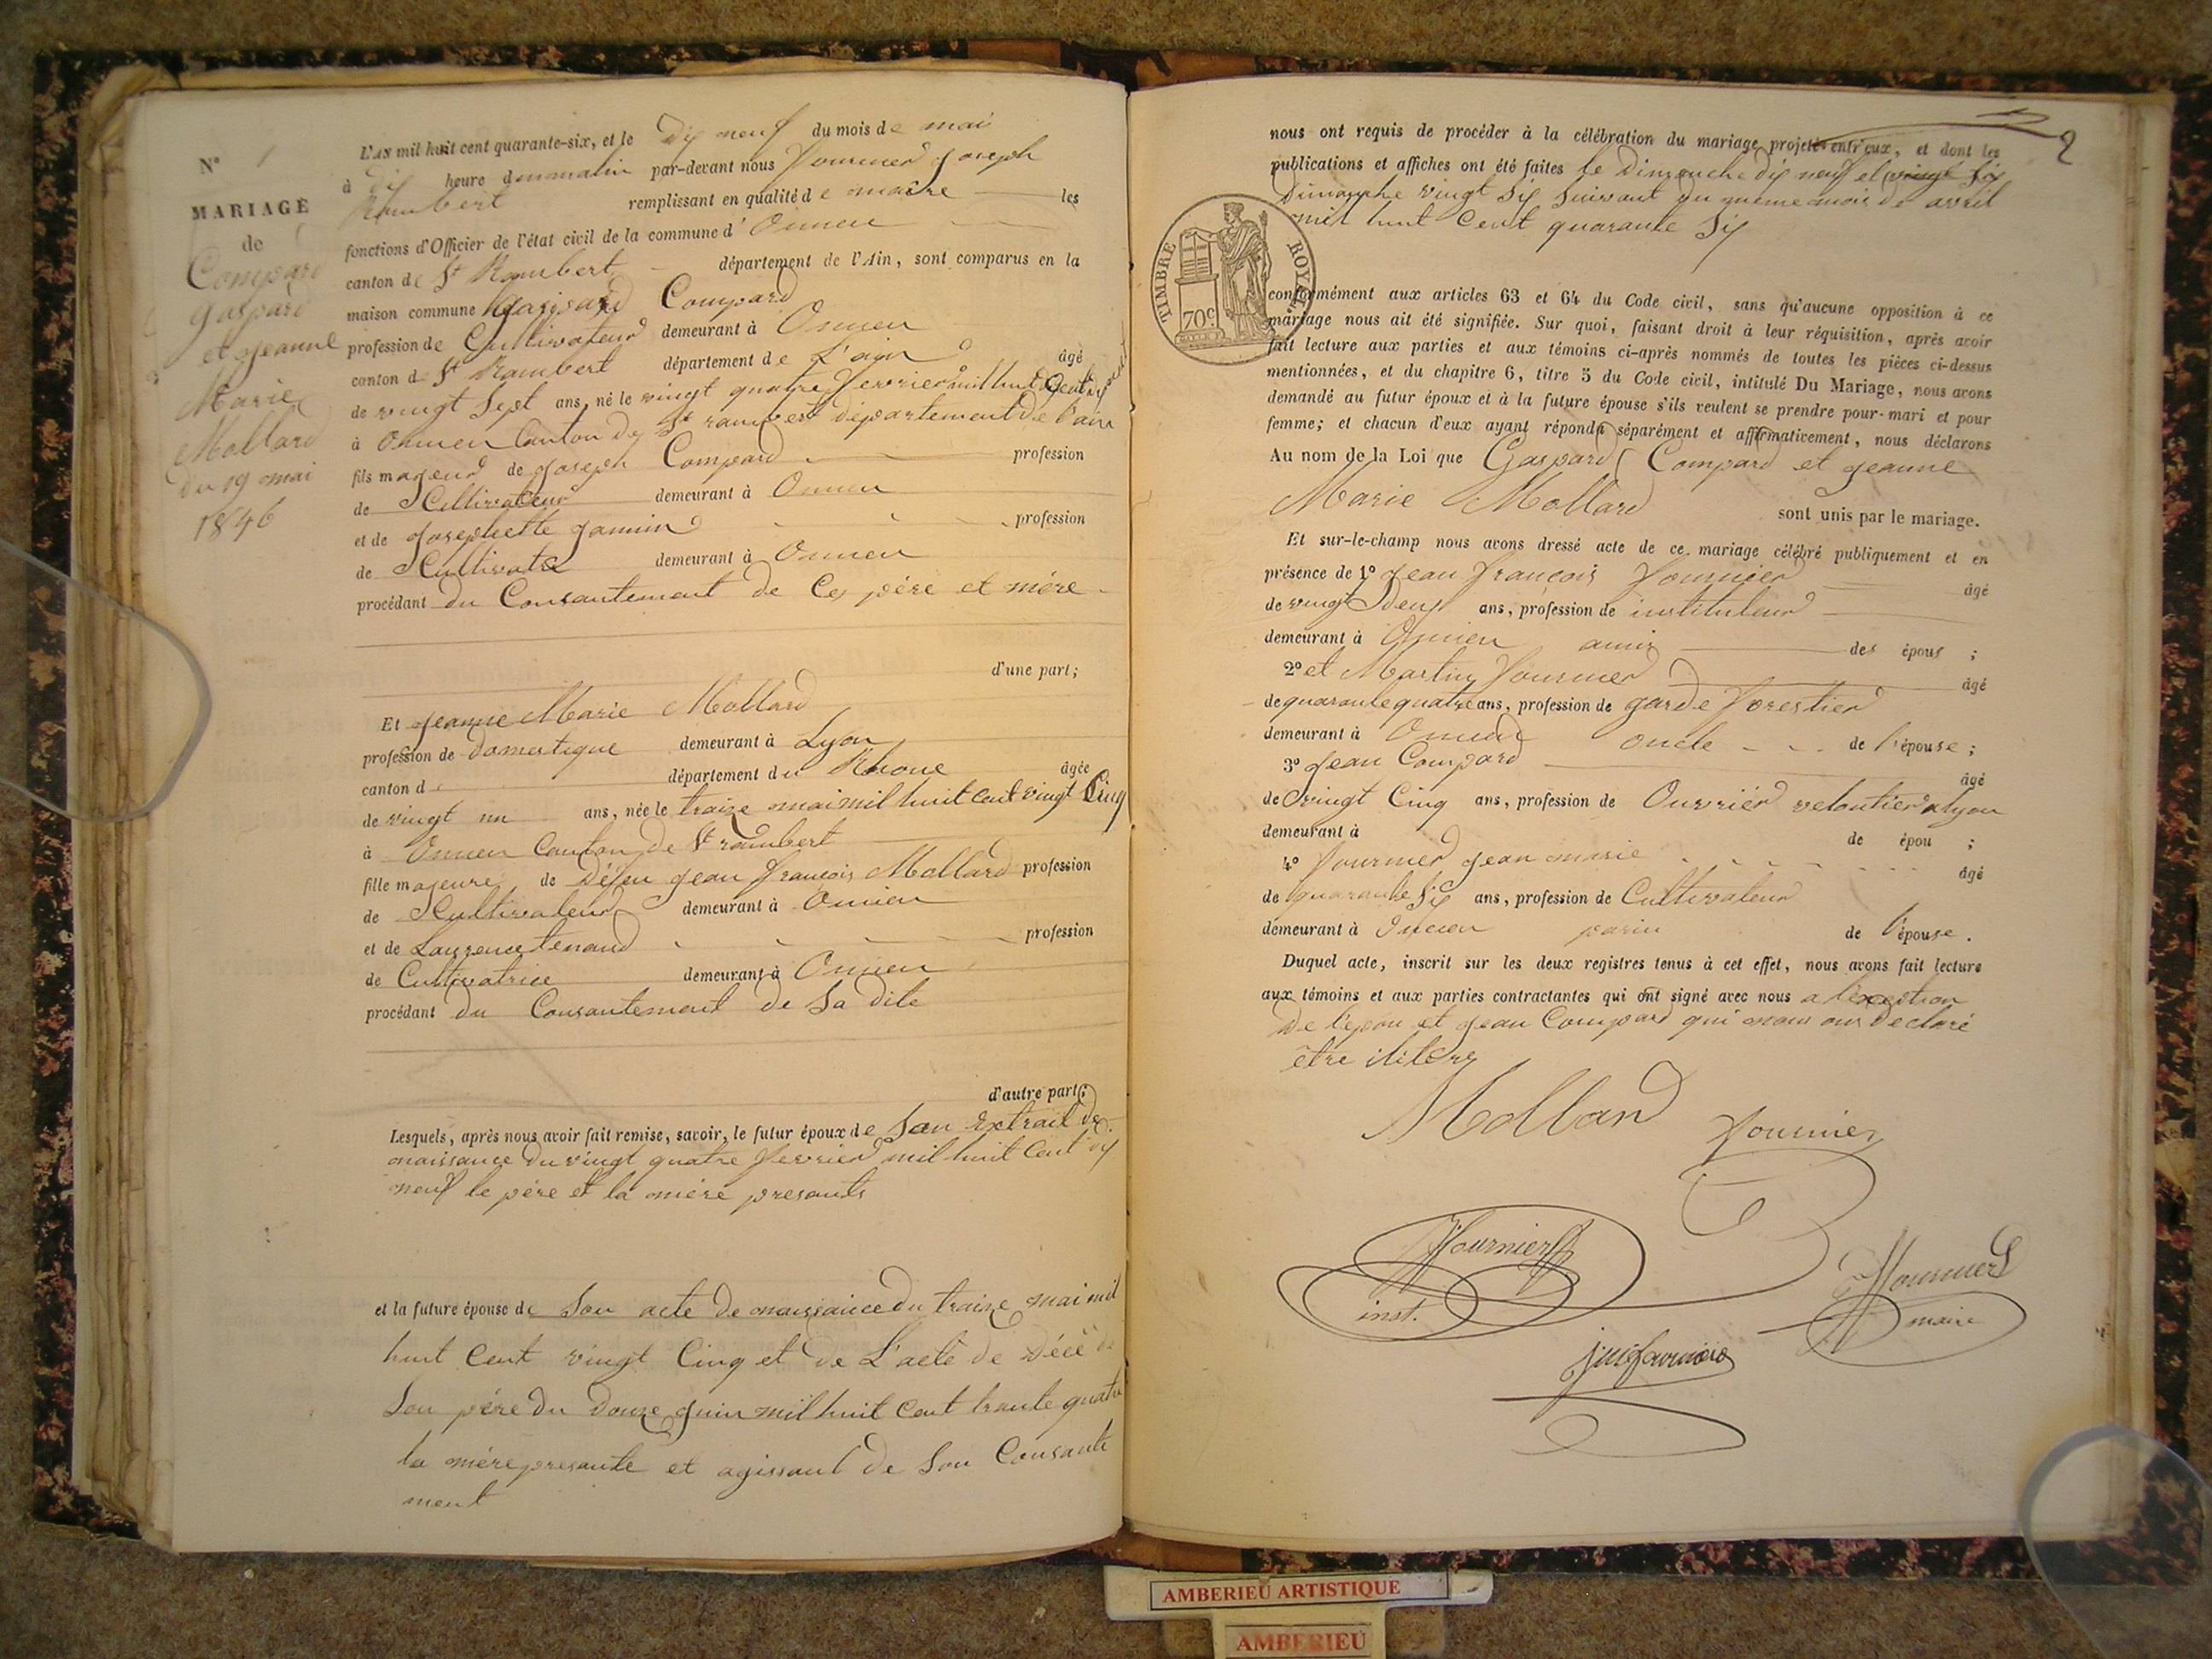 N° 1
MARIAGE
de
Compard
Gaspard
et Jeanne
Marie
Mollard
du 19 mai
1846
L'AN mil huit cent quarante-six, et le Dix neuf du mois de mai
à Dix heure du matin par-devant nous Fournier Joseph
Rambert remplissant en qualité de maire les
fonctions d'Officier de l'état civil de la commune d' Oncieu
canton de St Rambert département de l'Ain, sont comparus en la
maison commune Gaspard Compard
profession de Cultivateur demeurant à Oncieu
canton de St Rambert département de L'ain âgé
de vingt Sept ans, né le vingt quatre fevrier mil huit Cent
à Oncieu Canton de St rambert département de l'ain
fils majeur de Joseph Compard profession
de Cultivateur demeurant à Oncieu
et de Josephette Jannin profession
de Cultivatr demeurant à Oncieu
procédant du Consantement de Ces père et mère
d'une part;
Et Jeanne Marie Mollard
profession de domestique demeurant à Lyon
canton d département du Rhone âgée
de vingt un ans, née le traize mai mil huit cent vingt Cinq
à Oncieu Canton de St rambert
fille majeure de Défeu Jean françois Mollard profession
de Cultivateur demeurant à Oncieu
et de Laurence tenand profession
de Cultivatrice demeurant à Oncieu
procédant du Consantement de Sa dite
d'autre part;
Lesquels, après nous avoir fait remise, savoir, le futur époux de Son Extrait de
naissance du vingt quatre fevrier mil huit Cent dix
neuf le père et la mère presants
et la future épouse de Son acte de naissance du traize mai mil
huit Cent vingt Cinq et de L'acte de Décè de
Son père du Douze Juin mil huit Cent trante quatre
la mère presante et agissant de Son Consante
ment
2
nous ont requis de procéder à la célébration du mariage projeté entr'eux, et dont les
publications et affiches ont été faites le Dimanche dix neuf et vingt Six
Dimanche vingt Six Suivant du même mois de avril
mil huit Cent quarante Six
TIMBRE ROYAL
70c.
conformément aux articles 63 et 64 du Code civil, sans qu'aucune opposition à ce
mariage nous ait été signifiée. Sur quoi, faisant droit à leur réquisition, après avoir
fait lecture aux parties et aux témoins ci-après nommés de toutes les pièces ci-dessus
mentionnées, et du chapitre 6, titre 5 du Code civil, intitulé Du Mariage, nous avons
demandé au futur époux et à la future épouse s'ils veulent se prendre pour-mari et pour
femme; et chacun d'eux ayant répondu séparément et affirmativement, nous déclarons
Au nom de la Loi que Gaspard Compard et Jeanne
Marie Mollard sont unis par le mariage.
Et sur-le-champ nous avons dressé acte de ce mariage célébré publiquement et en
présence de 1° Jean François Fournier âgé
de vingt Deux ans, profession de instituteur
demeurant à Oncieu amis des épous ;
2° et Martin Fournier âgé
de quarante quatre ans, profession de garde forestier
demeurant à Oncieu oncle de l'épouse ;
3° Jean Compard âgé
de vingt Cinq ans, profession de Ouvriér veloutier a lyon
demeurant à de épou ;
4° Fournier Jean marie âgé
de quarante Six ans, profession de Cultivateur
demeurant à Oncieu parin de l'épouse.
Duquel acte, inscrit sur les deux registres tenus à cet effet, nous avons fait lecture
aux témoins et aux parties contractantes qui ont signé avec nous a l'exception
De l'épou et Jean Compard qui nous ons Declaré
être iliterr
Mollard Fournier
Fournier
inst.
Fournier
maire
jm fournier
AMBERIEU ARTISTIQUE
AMBERIEU